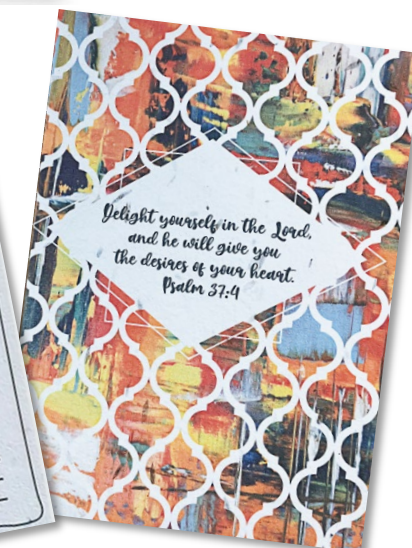 Delight yourself in the Lord,
and he will give you
the desires of your heart.
Psalm 37:4